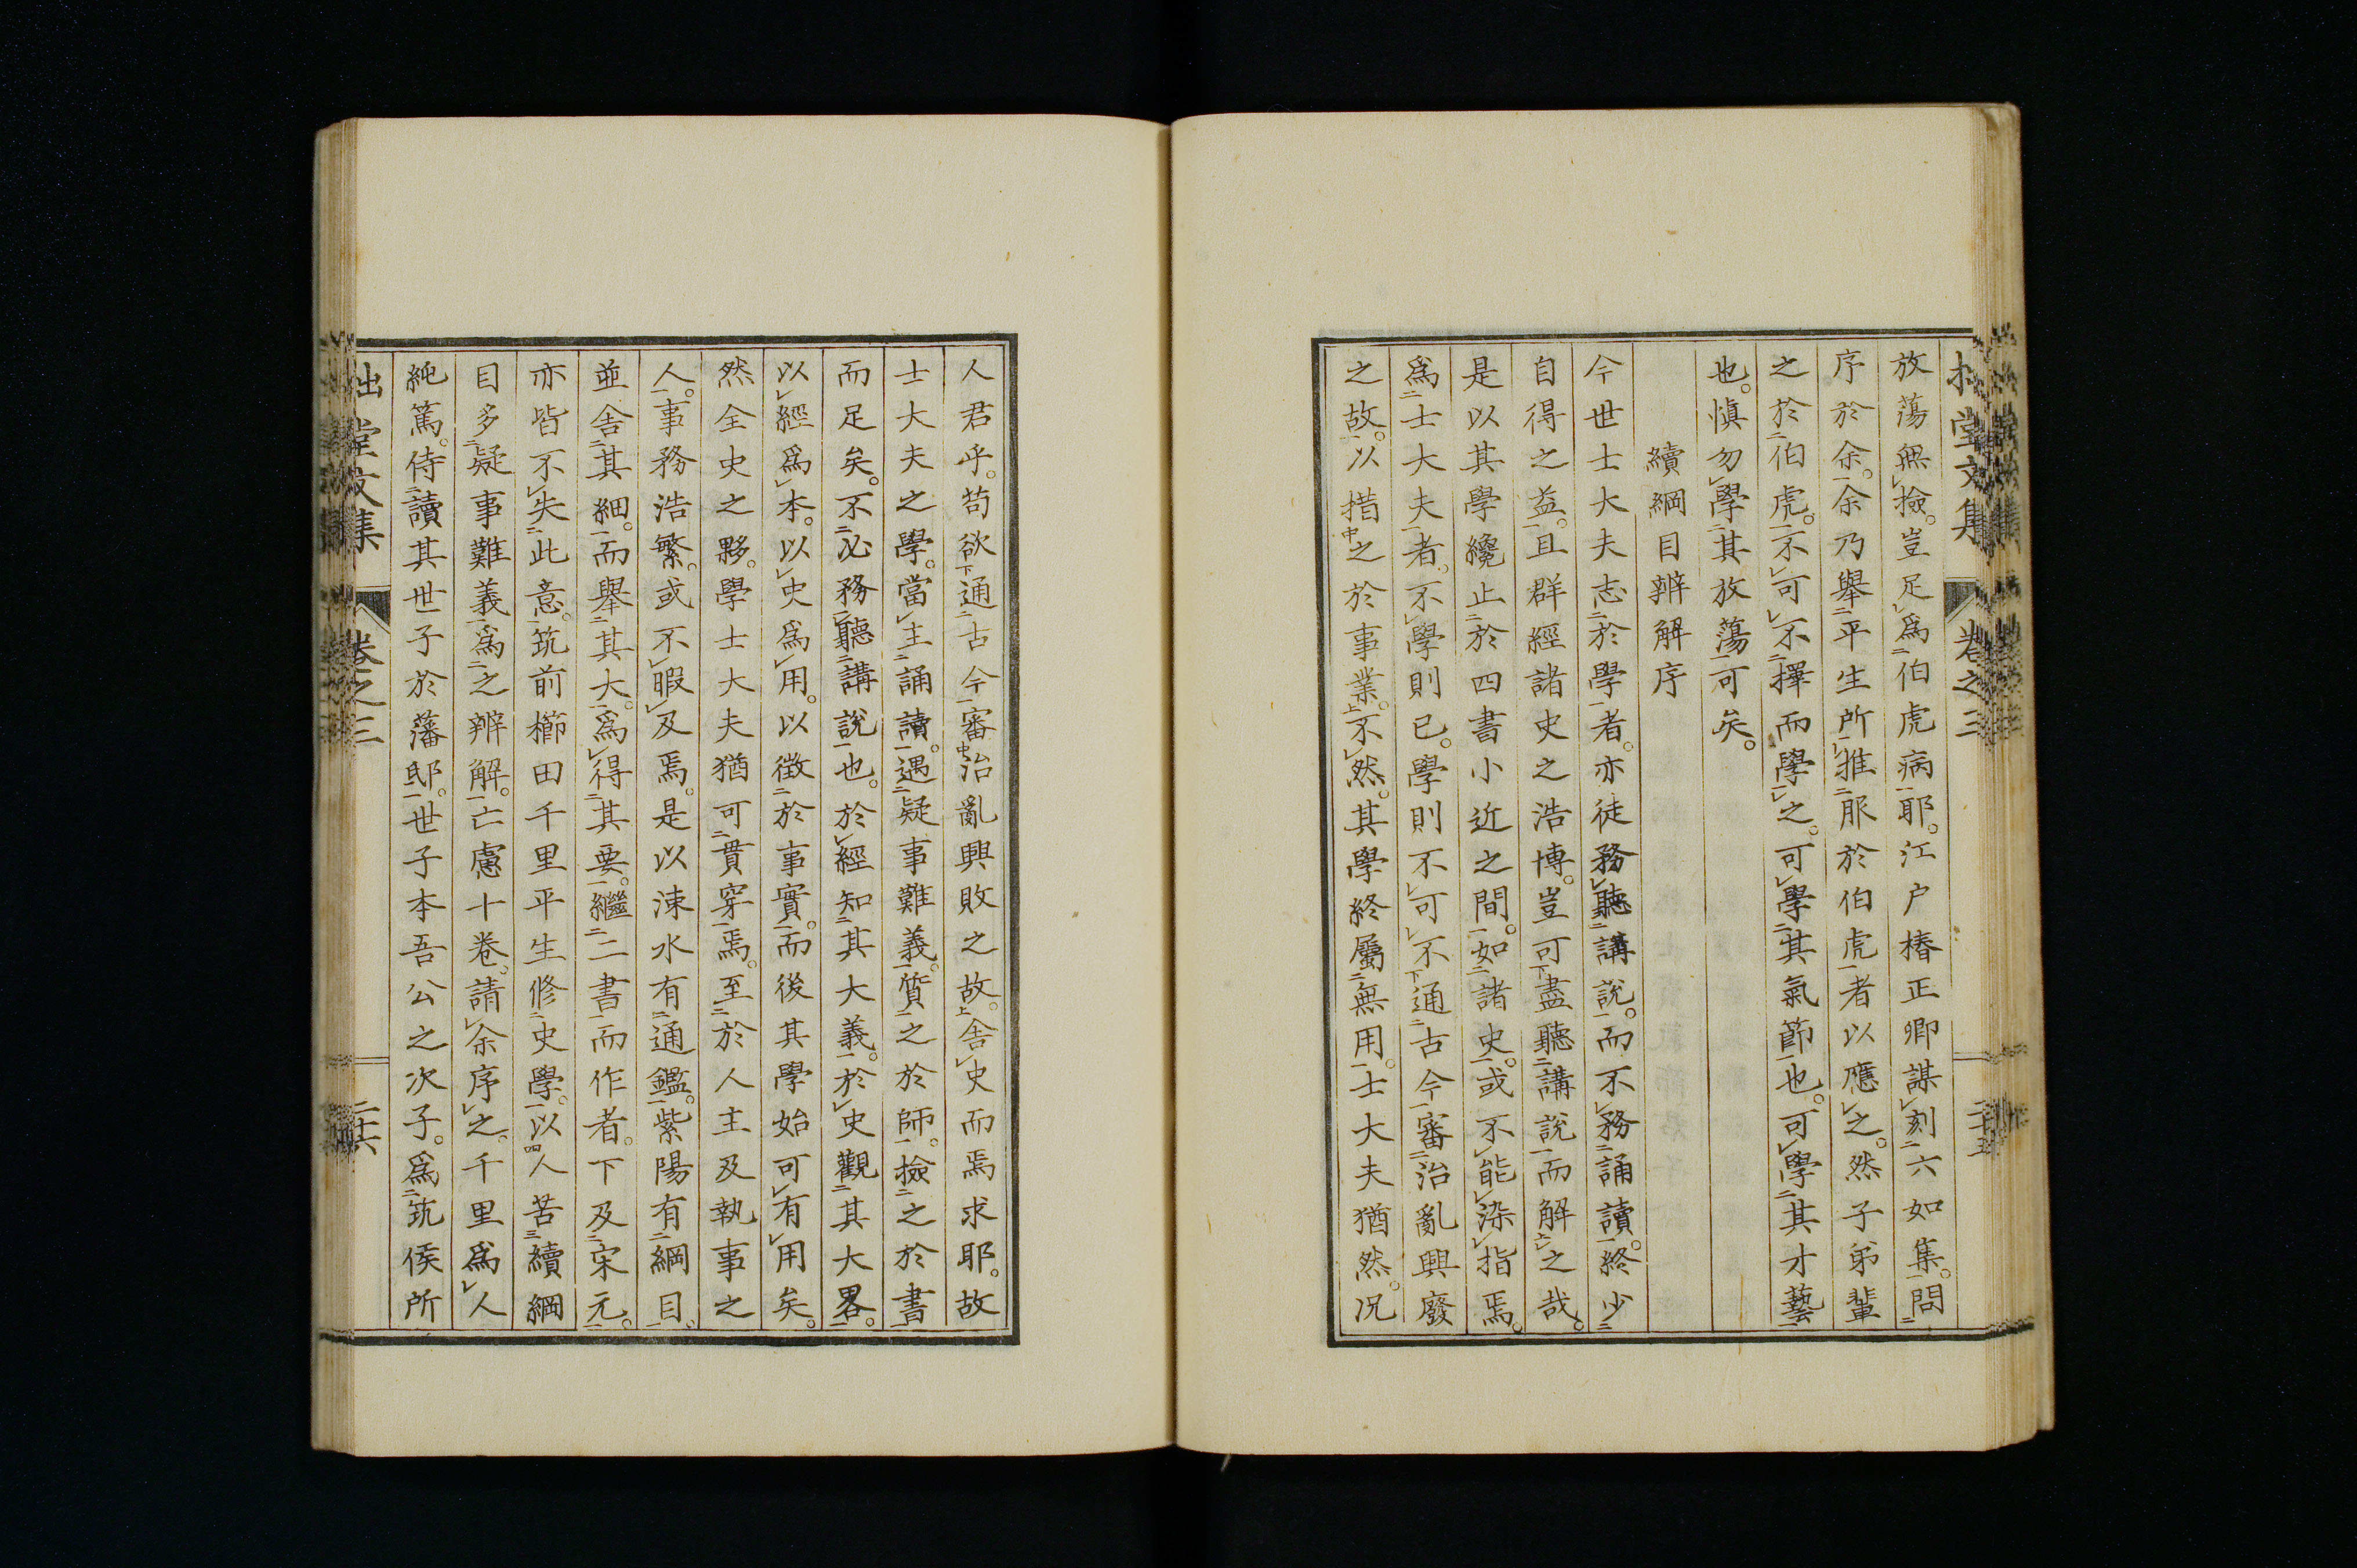 拙堂文集 卷之三 二十五
放蕩無檢。豈足爲伯虎病耶。江户椿正卿謀刻六如集。問
序於余。余乃舉平生所雅服於伯虎者以應之。然子弟輩
之於伯虎。不可不擇而學之。可學其氣節也。可學其才藝
也。愼勿學其放蕩可矣。
續綱目辨解序
今世士大夫志於學者。亦徒務聽講說。而不務誦讀。終少
自得之益。且群經諸史之浩博。豈可盡聽講說而解之哉。
是以其學纔止於四書小近之間。如諸史。或不能染指焉。
爲士大夫者。不學則已。學則不可不通古今審治亂興廢
之故。以措之於事業。不然。其學終屬無用。士大夫猶然。况
人君乎。苟欲通古今審治亂興敗之故。舍史而焉求耶。故
士大夫之學。當主誦讀。遇疑事難義。質之於師。檢之於書
而足矣。不必務聽講說也。於經知其大義。於史觀其大畧。
以經爲本。以史爲用。以徵於事實。而後其學始可有用矣。
然全史之夥。學士大夫猶可貫穿焉。至於人主及執事之
人。事務浩繁。或不暇及焉。是以涑水有通鑑。紫陽有綱目。
並舍其細。而舉其大。爲得其要。繼二書而作者。下及宋元。
亦皆不失此意。筑前櫛田千里平生修史學。以人苦續綱
目多疑事難義。爲之辨解。亡慮十卷。請余序之。千里爲人
純篤。侍讀其世子於藩邸。世子本吾公之次子。爲筑侯所
拙堂文集 卷之三 二十六